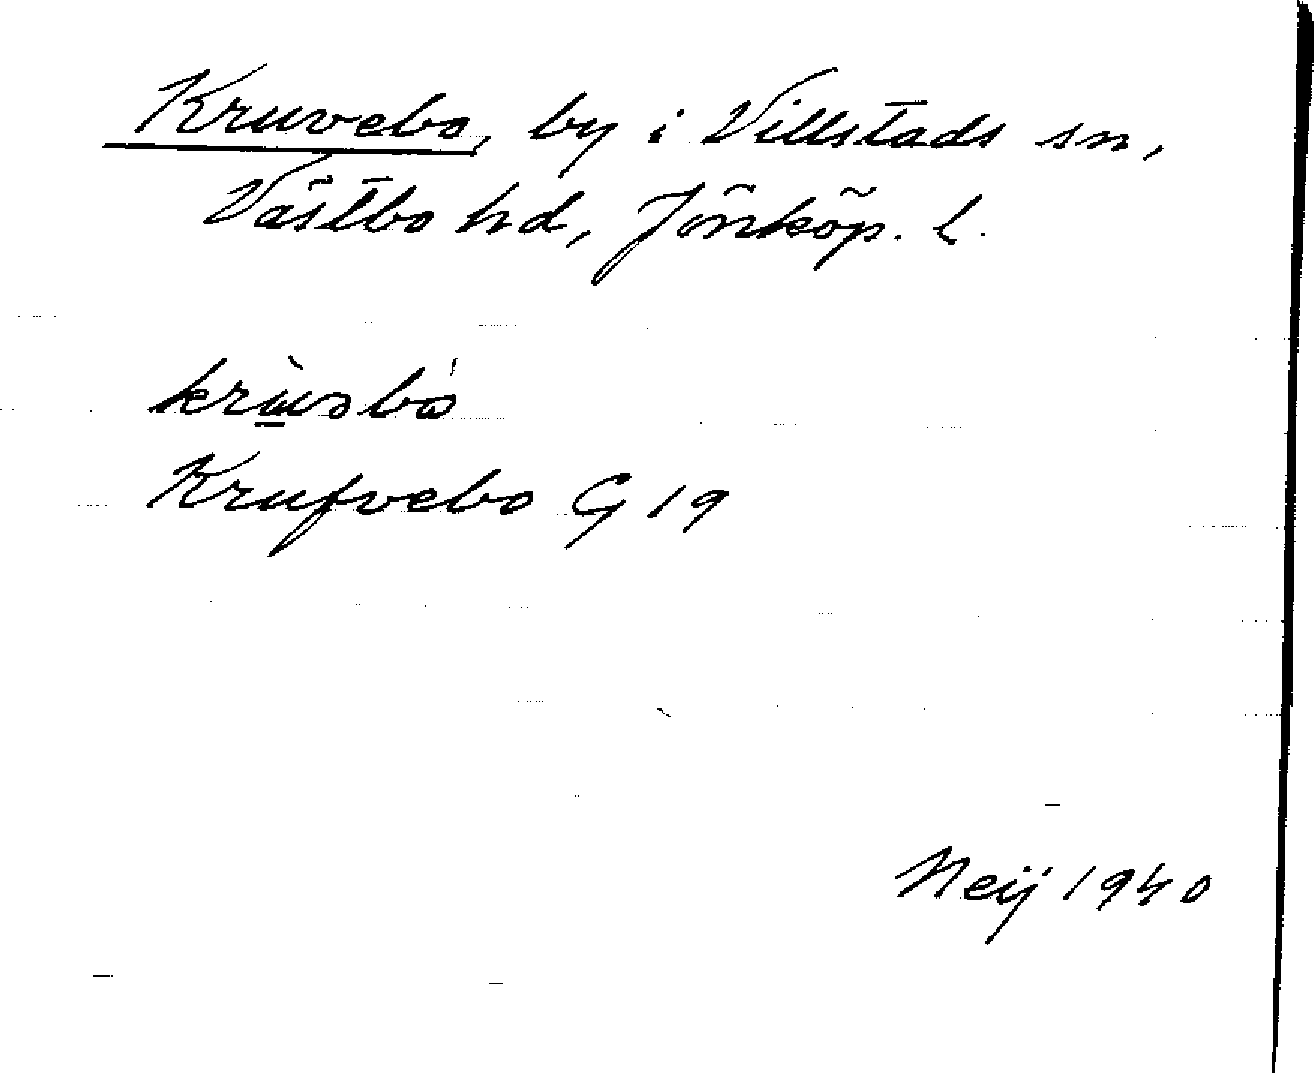 Kruvebo, by i Villstads sn,
Västbo hd, Jönköp. l.
Krufvebo G 19
Neij 1940